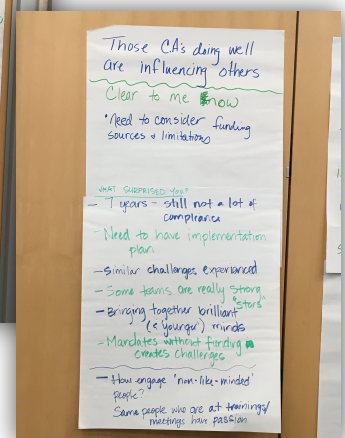 Those CA's doing well
are influencing others
Clear to me now
• Need to consider funding
sources & limitations
WHAT SURPRISED YOU?
- 7 years - still not a lot of
compliance
- Need to have implementation
plan
- Similar challenges experienced
- Some teams are really strong
"stars"
- Bringing together brilliant
(& younger) minds
- Mandates without funding
creates challenges
- How engage "non-like-minded"
people?
Same people who are at trainings/
meetings have passion